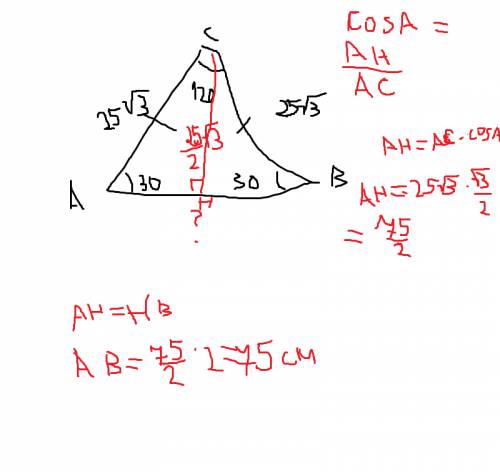 C
120
25√3
25√3
25√3
2
A
30
30
B
H
?
COSA =
AH
AC
AH = AC · COSA
AH = 25√3 · √3
2
= 75
2
AH = HB
AB = 75 · 2 = 75 см
2